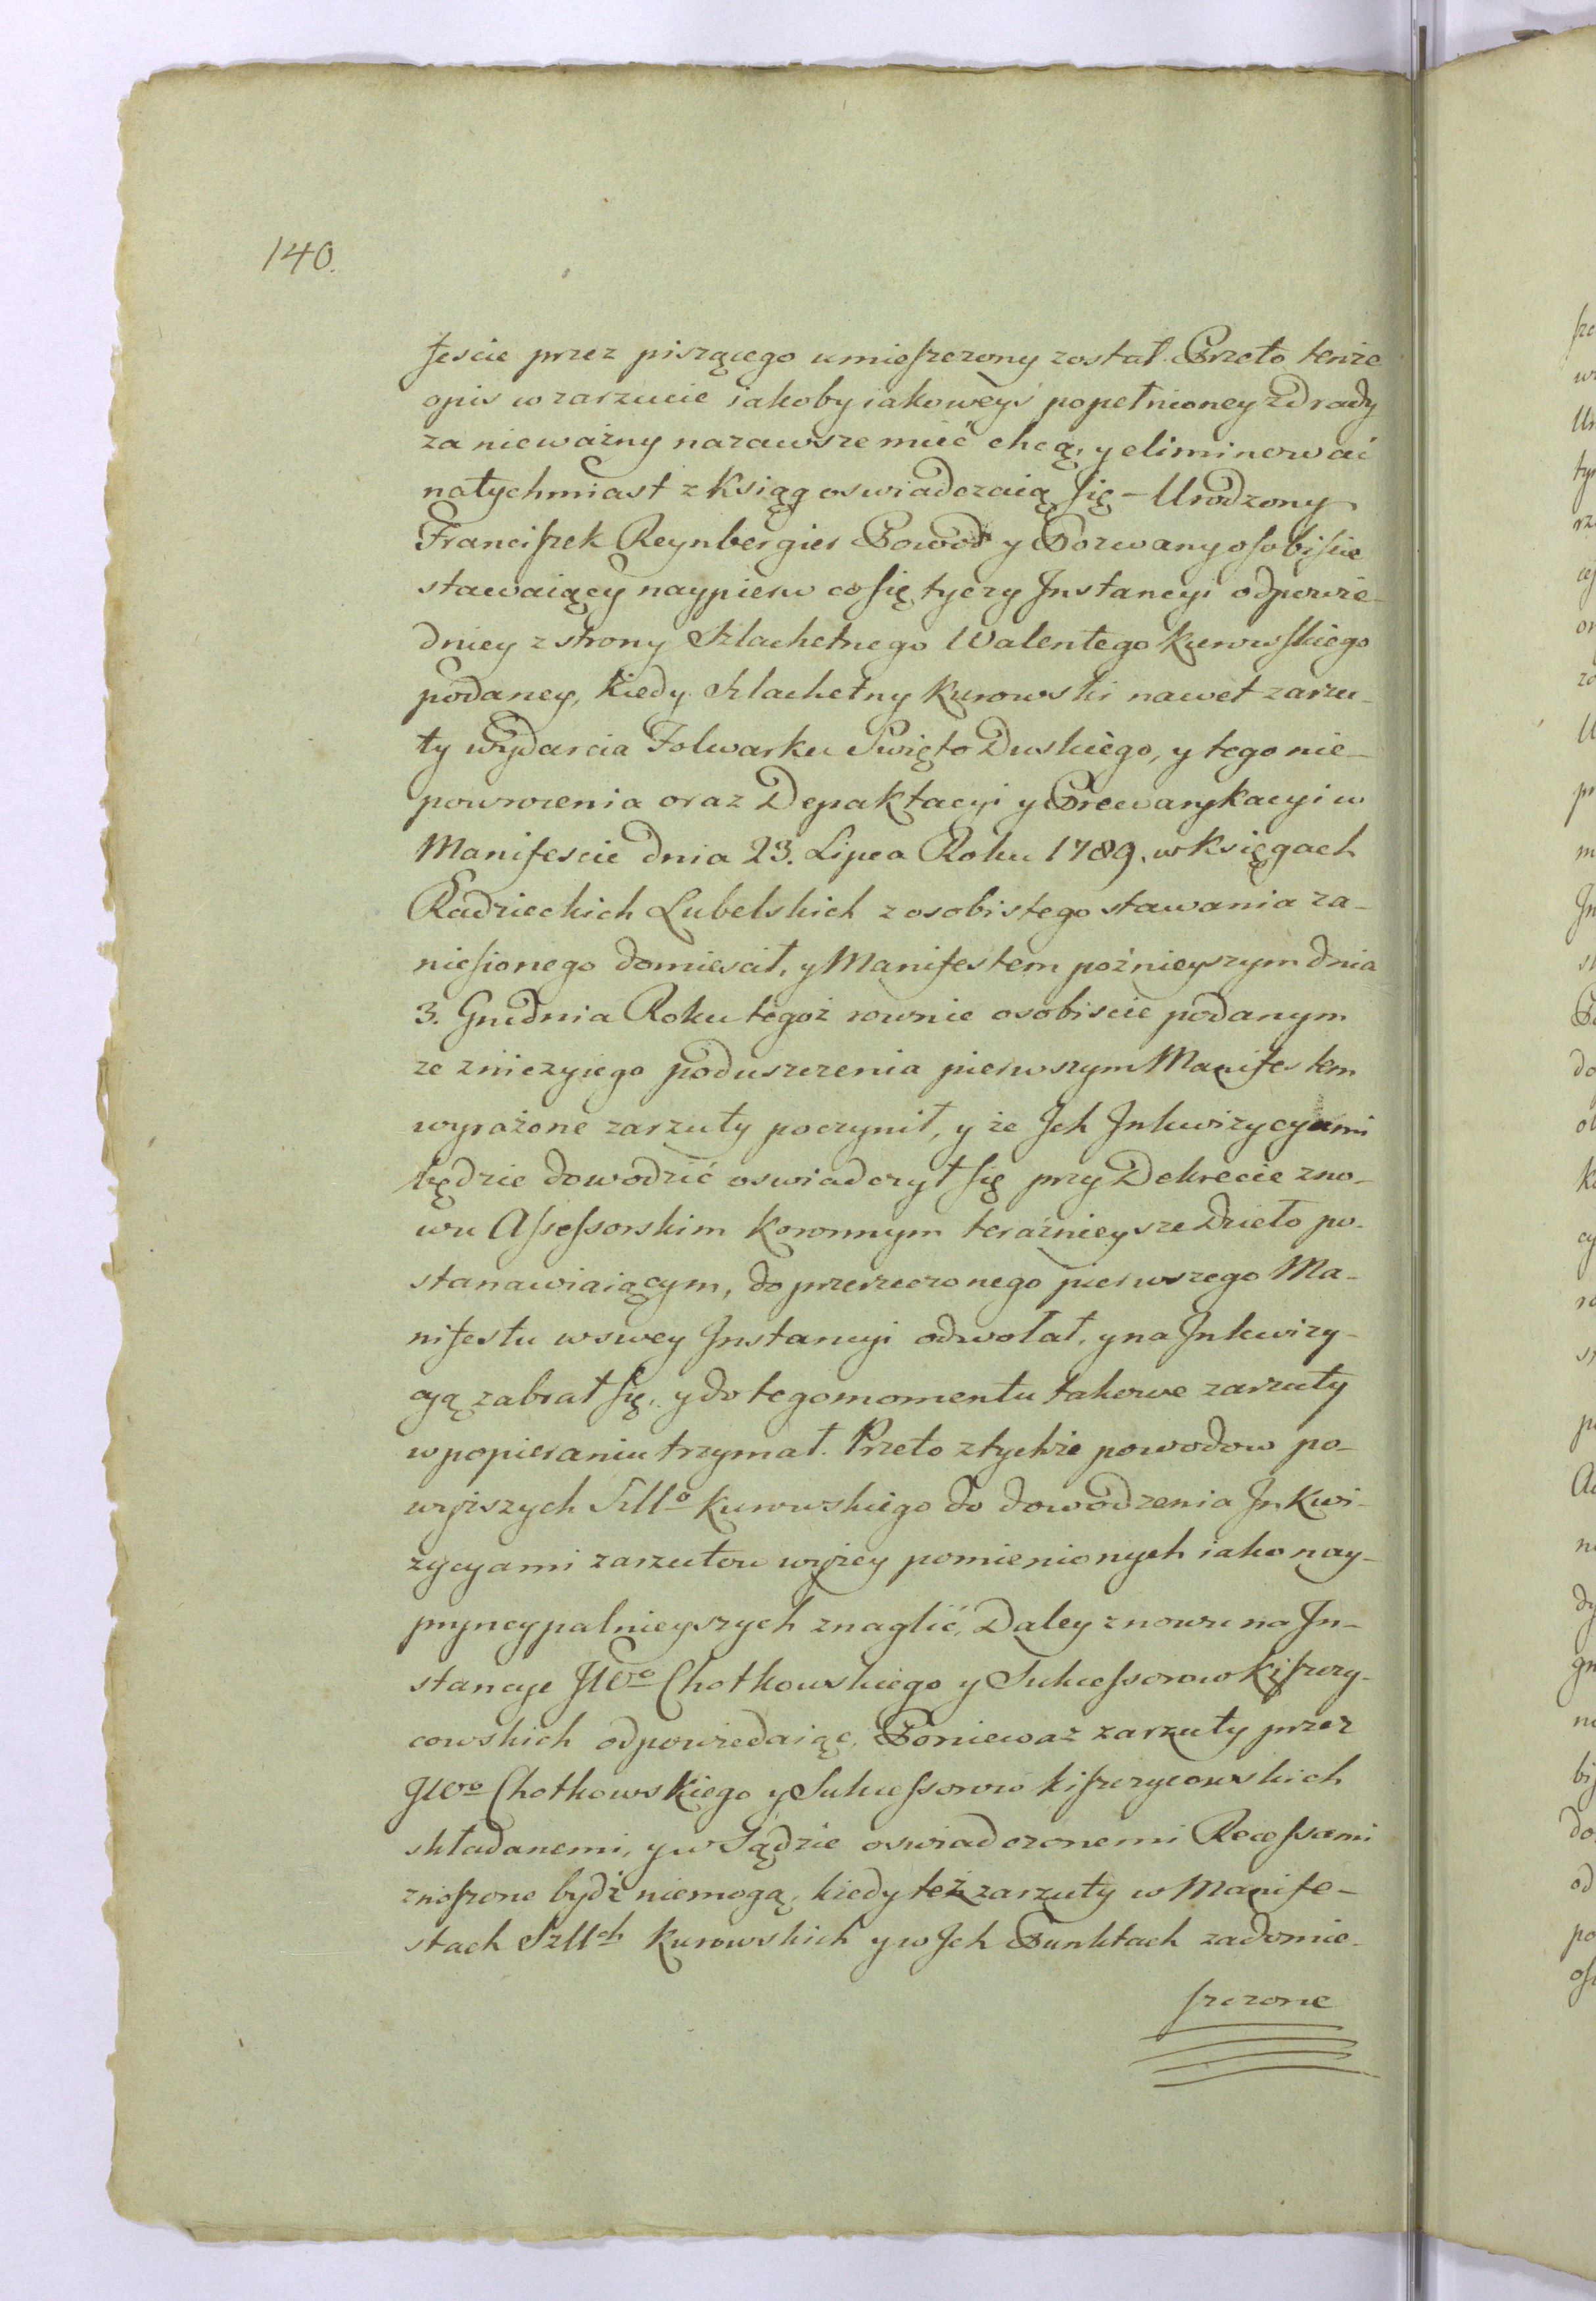 140.
feście przez piszącego umieszczony został. Przeto tenże
opis w zarzucie iakoby iakoweyś popełnioney Zdrady
za nieważny nazawsze mieć chcą, y eliminować
natychmiast z Ksiąg oswiadczaią się – Urodzony
Franciszek Reynbergier Powod y Pozwany osobiscie
stawaiący naypierw co się tyczy Instancyi odpowie-
dniey z strony Szlachetnego Walentego Kurowskiego
podaney, kiedy Szlachetny Kurowski nawet zarzu-
ty wydarcia Folwarku Swięto Duskiego, y tego nie-
powrocenia oraz Depaktacyi y Prewarykacyi w
Manifescie dnia 23. Lipca Roku 1789. w Księgach
Radzieckich Lubelskich z osobistego stawania za-
niesionego domiescił, y Manifestem poźnieyszym dnia
3. Grudnia Roku tegoż rownie osobiscie podanym
ze zniczyiego poduszczenia pierwszym Manifestem
wyrażone zarzuty poczynił, y że Ich Inkwizycyami
będzie dowodzić oswiadczył się przy Dekrecie zno-
wu Assessorskim Koronnym teraźnieysze Dzieło po-
stanawiaiącym, do przerzeczonego pierwszego Ma-
nifestu w swey Instancyi odwołał, y na Inkwizy-
cyą zabrał się, y do tego momentu takowe zarzuty
w popieraniu trzymał. Przeto z tychże powodow po-
wyższych Szllo Kurowskiego do dowodzenia Inkwi-
zycyami zarzutow wyżey pomienionych iako nay-
pryncypalnieyszych znaglić, Daley znowu na In-
stancye JWo Chotkowskiego y Sukcessorow Kiszczy-
cowskich odpowiedaiąc, Poniewaz zarzuty przez
JWo Chotkowskiego y Sukcessorow kiszczycowskich
składanemi, y w Sądzie oswiadczonemi Recessami
znoszone bydź niemogą, kiedy też zarzuty w Manife-
stach Szllch Kurowskich y w Ich Punktach zadomie-
szczone